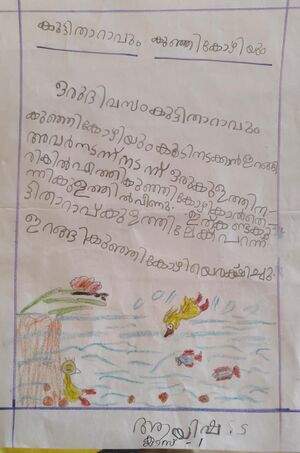 കുട്ടിതാറാവും കുഞ്ഞികോഴിയും
ഒരുദിവസംകുട്ടിതാറാവും
കുഞ്ഞികോഴിയുംകൂടിനടക്കാൻഇറങ്ങി
അവർനടന്ന്നടന്ന് ഒരുകുളത്തിന
രികിൽഎത്തികുഞ്ഞികോഴികാൽതെ
ന്നികുളത്തിൽവീണു. ഇത്കണ്ടകു
ട്ടിതാറാപ്കുളത്തിലേക്ക്പറന്ന്
ഇറങ്ങികുഞ്ഞികോഴിയെരക്ഷിച്ചു.
ആയിഷ . S
ക്ലാസ് - 1